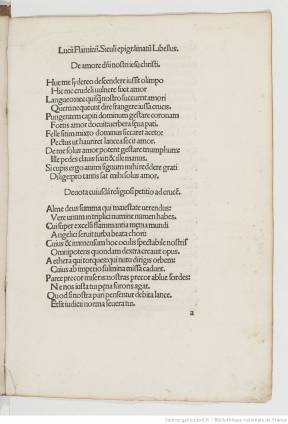 Lucii Flaminii Siculi epigrãmatũ Libellus.
De amore dñi nostri iesu christi.
Huc me sydereo descendere iussit olimpo
Hic me crudeli uulnere fixit amor
Langueo nec quisq̃ nostro succurrit amori
Quem nequeunt dire frangere iussa crucis.
Pungentem capiti dominum gestare coronam
Fortis amor docuit uerbera spua pati.
Felle sitim mixto dominus saccaret aceto
Pectus ut hauriret lancea fecit amor.
De me solus amor potuit gestare triumphum
Ille pedes clauis fixit & ille manus.
Si cupis ergo animi signum mihi reddere grati
Dilige pro tantis sat mihi solus amor.
Deuota cuiusdã religiosi petitio ad crucẽ.
Alme deus summa qui maiestate uerendus:
Vere unum in triplici numine numen habes.
Cui super excelsi flammantia mœnia mundi
Angelici seruit turba beata chori:
Cuius & immensum hoc oculis spectabile nostris
Omnipotens quondam dextra creauit opus.
Aethera qui torques qui nutu dirigis orbem:
Cuius ab imperio fulmina missa cadunt.
Parce precor miseris nostras precor ablue sordes:
Ne nos iusta tui pœna furoris agat.
Quod si nostra pari pensentur debita lance.
Et sit iudicii norma seuera tui.
a
Source gallica.bnf.fr / Bibliothèque nationale de France